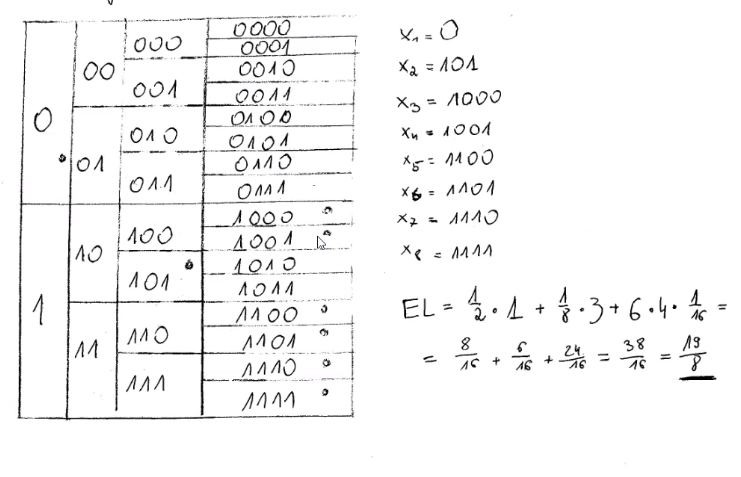 0
1
00
01
10
11
000
001
010
011
100
101
110
111
0000
0001
0010
0011
0100
0101
0110
0111
1000
1001
1010
1011
1100
1101
1110
1111
x₁ = 0
x₂ = 101
x₃ = 1000
x₄ = 1001
x₅ = 1100
x₆ = 1101
x₇ = 1110
x₈ = 1111
EL = 1/2 · 1 + 1/8 · 3 + 6 · 4 · 1/16 =
= 8/16 + 6/16 + 24/16 = 38/16 = 19/8